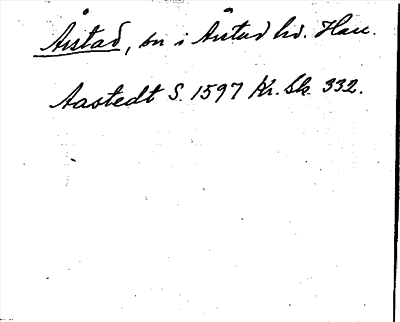 Årstad, sn i Årstad hd. Hall.
Aastedt S. 1597 Kr. Sk. 332.